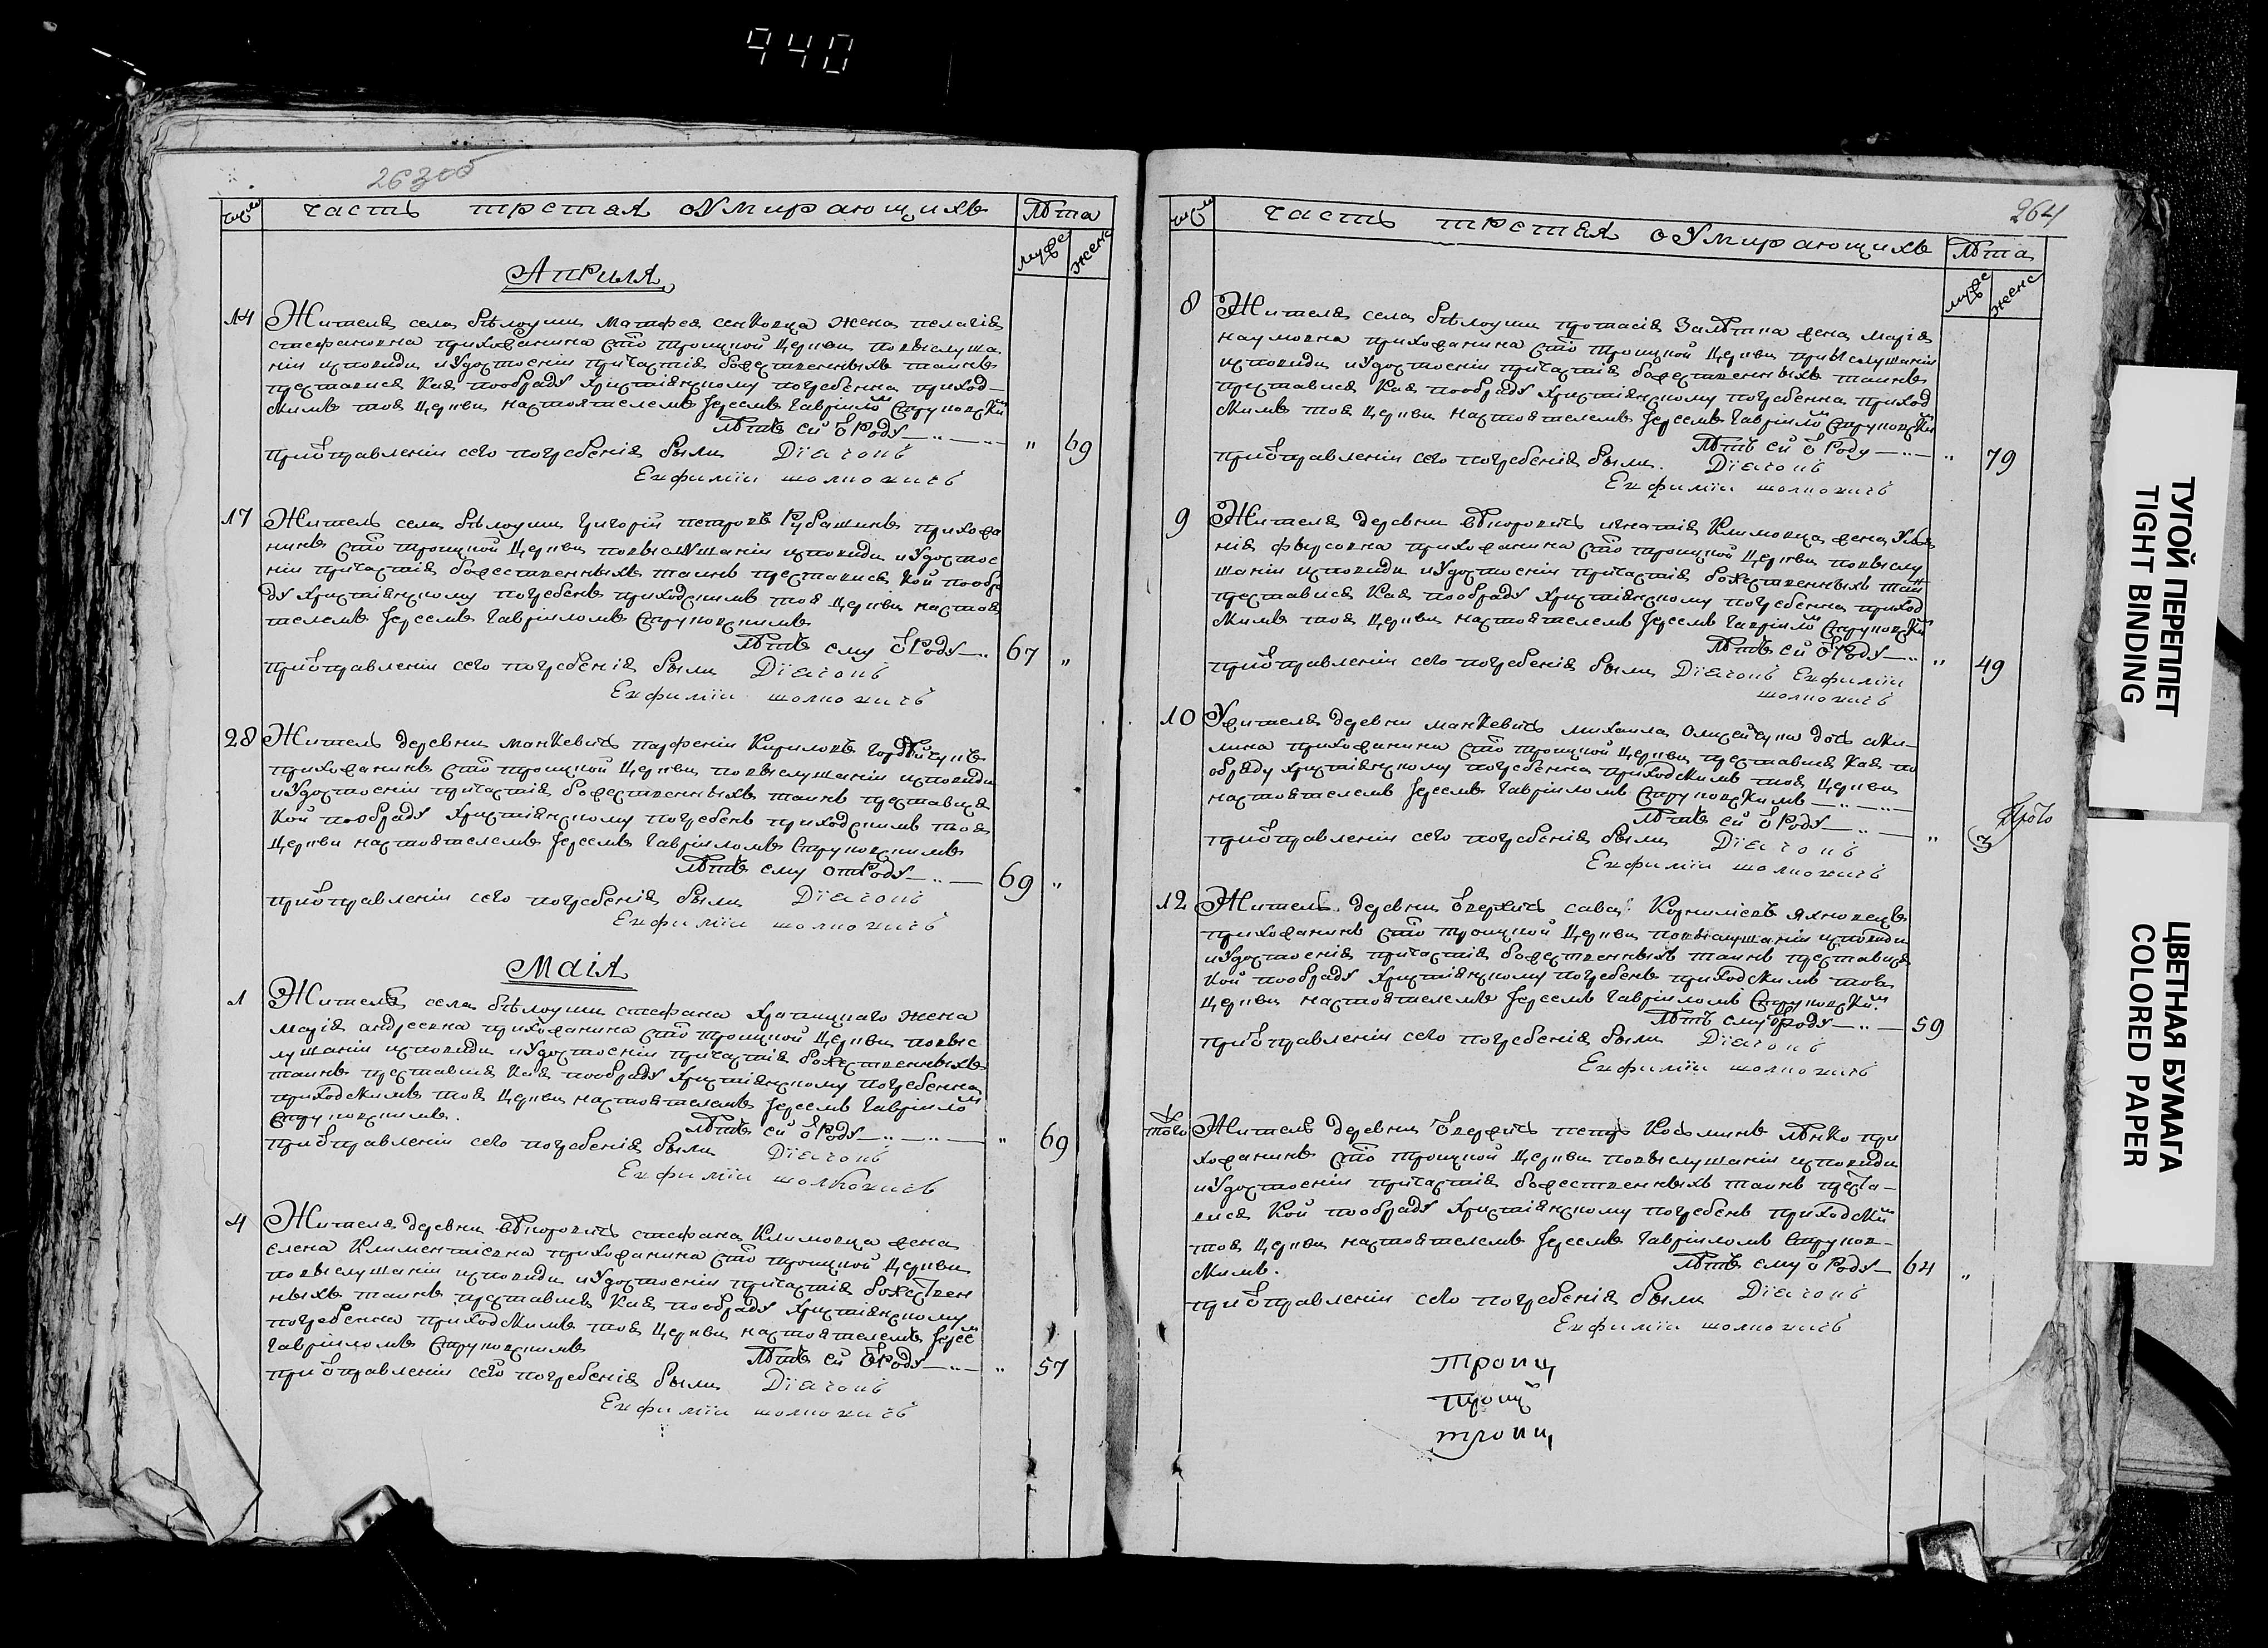 940
263об
Число
Часть третая оумирающихъ
Лѣта
муже
женс
Априля
14
Жителя села бѣлоуши матфея сенковца жена пелагія
стефановна прихожанина сто троицкой Церкви повыслуша
ніи исповиди иУдостоеніи причастія божественныхъ таинъ
преставися Кая пообряду христіянскому погребенна приход-
скимъ тоя Церкви настоятелемъ Іереемъ Гавріиломъ Струковскимъ
Лѣтъ ей ѿ Роду
" 69
приѿправленіи сего погребенія были Діачокъ
Екфимій
17
Житель села бѣлоуши Григорій петровъ Рубашинъ прихожа
нинъ сто троицкой Церкви повыслУшаніи исповиди иУдостое
ніи причастія божественныхъ таинъ преставися Кой пообря
ду христіянскому погребенъ приходскимъ тоя Церкви настоя
телемъ Іереемъ Гавріиломъ Струковскимъ
Лѣтъ ему ѿ Роду
67 "
приѿправленіи сего погребенія были Діачокъ
Екфимій
28
Житель деревни манкевичъ парфеній Кириловъ Гордѣйчукъ
прихожанинъ сто троицкой Церкви повыслушаніи исповиди
иУдостоеніи причастія божественныхъ таинъ преставися
Кой пообряду христіянскому погребенъ приходскимъ тоя
Церкви настоятелемъ Іереемъ Гавріиломъ Струковскимъ
Лѣтъ ему отРоду
69 "
приѿправленіи сего погребенія были Діачокъ
Екфимій
Маія
1
Жителя села бѣлоуши стефана жена
марія андреевна прихожанина сто троицкой Церкви повыс
лушаніи исповиди иУдостоеніи причастія божественныхъ
таинъ преставися Кая пообряду христіянскому погребенна
приходскимъ тоя Церкви настоятелемъ Іереемъ Гавріиломъ
Струковскимъ.
Лѣтъ ей ѿ Роду
" 69
приѿправленіи сего погребенія были Діачокъ
Екфимій
4
Жителя деревни стефана Климовца жена
елена Климентіевна прихожанина сто троицкой Церкви
повыслушаніи исповиди иУдостоеніи причастія божествен
ныхъ таинъ преставися Кая пообряду христіянскому
погребенна приходскимъ тоя Церкви настоятелемъ Іерее
Гавріиломъ Струковскимъ
Лѣтъ ей ѿ Роду
" 57
приѿправленіи сего погребенія были Діачокъ
Екфимій
264
Число
Часть третая оУмирающихъ
Лѣта
муже
женс
8
Жителя села бѣлоуши протасія жена марія
наумовна прихожанина сто троицкой Церкви привыслушаніи
исповиди иУдостоеніи причастія божественныхъ таинъ
преставися Кая пообряду христіянскому погребенна приход
скимъ тоя Церкви настоятелемъ Іереемъ Гавріиломъ Струковскимъ
Лѣтъ ей ѿ Роду
" 79
приѿправленіи сего погребенія были. Діачокъ
Екфимій
9
Жителя деревни игнатія Климовца жена Улья
нія прихожанина сто троицкой Церкви повыслу
шаніи исповиди иУдостоеніи причастія божественныхъ таин
преставися Кая пообряду христіянскому погребенна приход
скимъ тоя Церкви настоятелемъ Іереемъ Гавріиломъ Струковскимъ
Лѣтъ ей ѿ Роду
" 49
приѿправленіи сего погребенія были Діачокъ Екфимій
10
Ужителя деревни манкевичъ михаила дочь аки-
лина прихожанина сто троицкой Церкви преставися Кая по
обряду христіянскому погребенна приходскимъ тоя Церкви
настоятелемъ Іереемъ Гавріиломъ Струковскимъ
Лѣтъ ей ѿ Роду
" 3
приѿправленіи сего погребенія были Діачокъ
Екфимій
12
Житель деревни ѿвержичъ сава Корниліевъ яхновецъ
прихожанинъ сто троицкой Церкви повыслушаніи исповиди
иУдостоенія причастія божественныхъ таинъ преставися
Кой пообряду христіянскому погребенъ приходскимъ тоя
Церкви настоятелемъ Іереемъ Гавріиломъ Струковскимъ
Лѣтъ ему ѿ Роду
59
приѿправленіи сего погребенія были Діачокъ
Екфимій
того
Житель деревни ѿвержичъ петръ Косьминъ лѣнко при
хожанинъ сто троицкой Церкви повыслушаніи исповиди
иУдостоеніи причастія божественныхъ таинъ преста-
вися Кой пообряду христіянскому погребенъ приходским
тоя Церкви настоятелемъ Іереемъ Гавріиломъ Струков-
скимъ.
Лѣтъ ему ѿ Роду
64 "
приѿправленіи сего погребенія были Діачокъ
Екфимій
троиц
троиц
троиц
ТУГОЙ ПЕРЕПЛЕТ
TIGHT BINDING
ЦВЕТНАЯ БУМАГА
COLORED PAPER